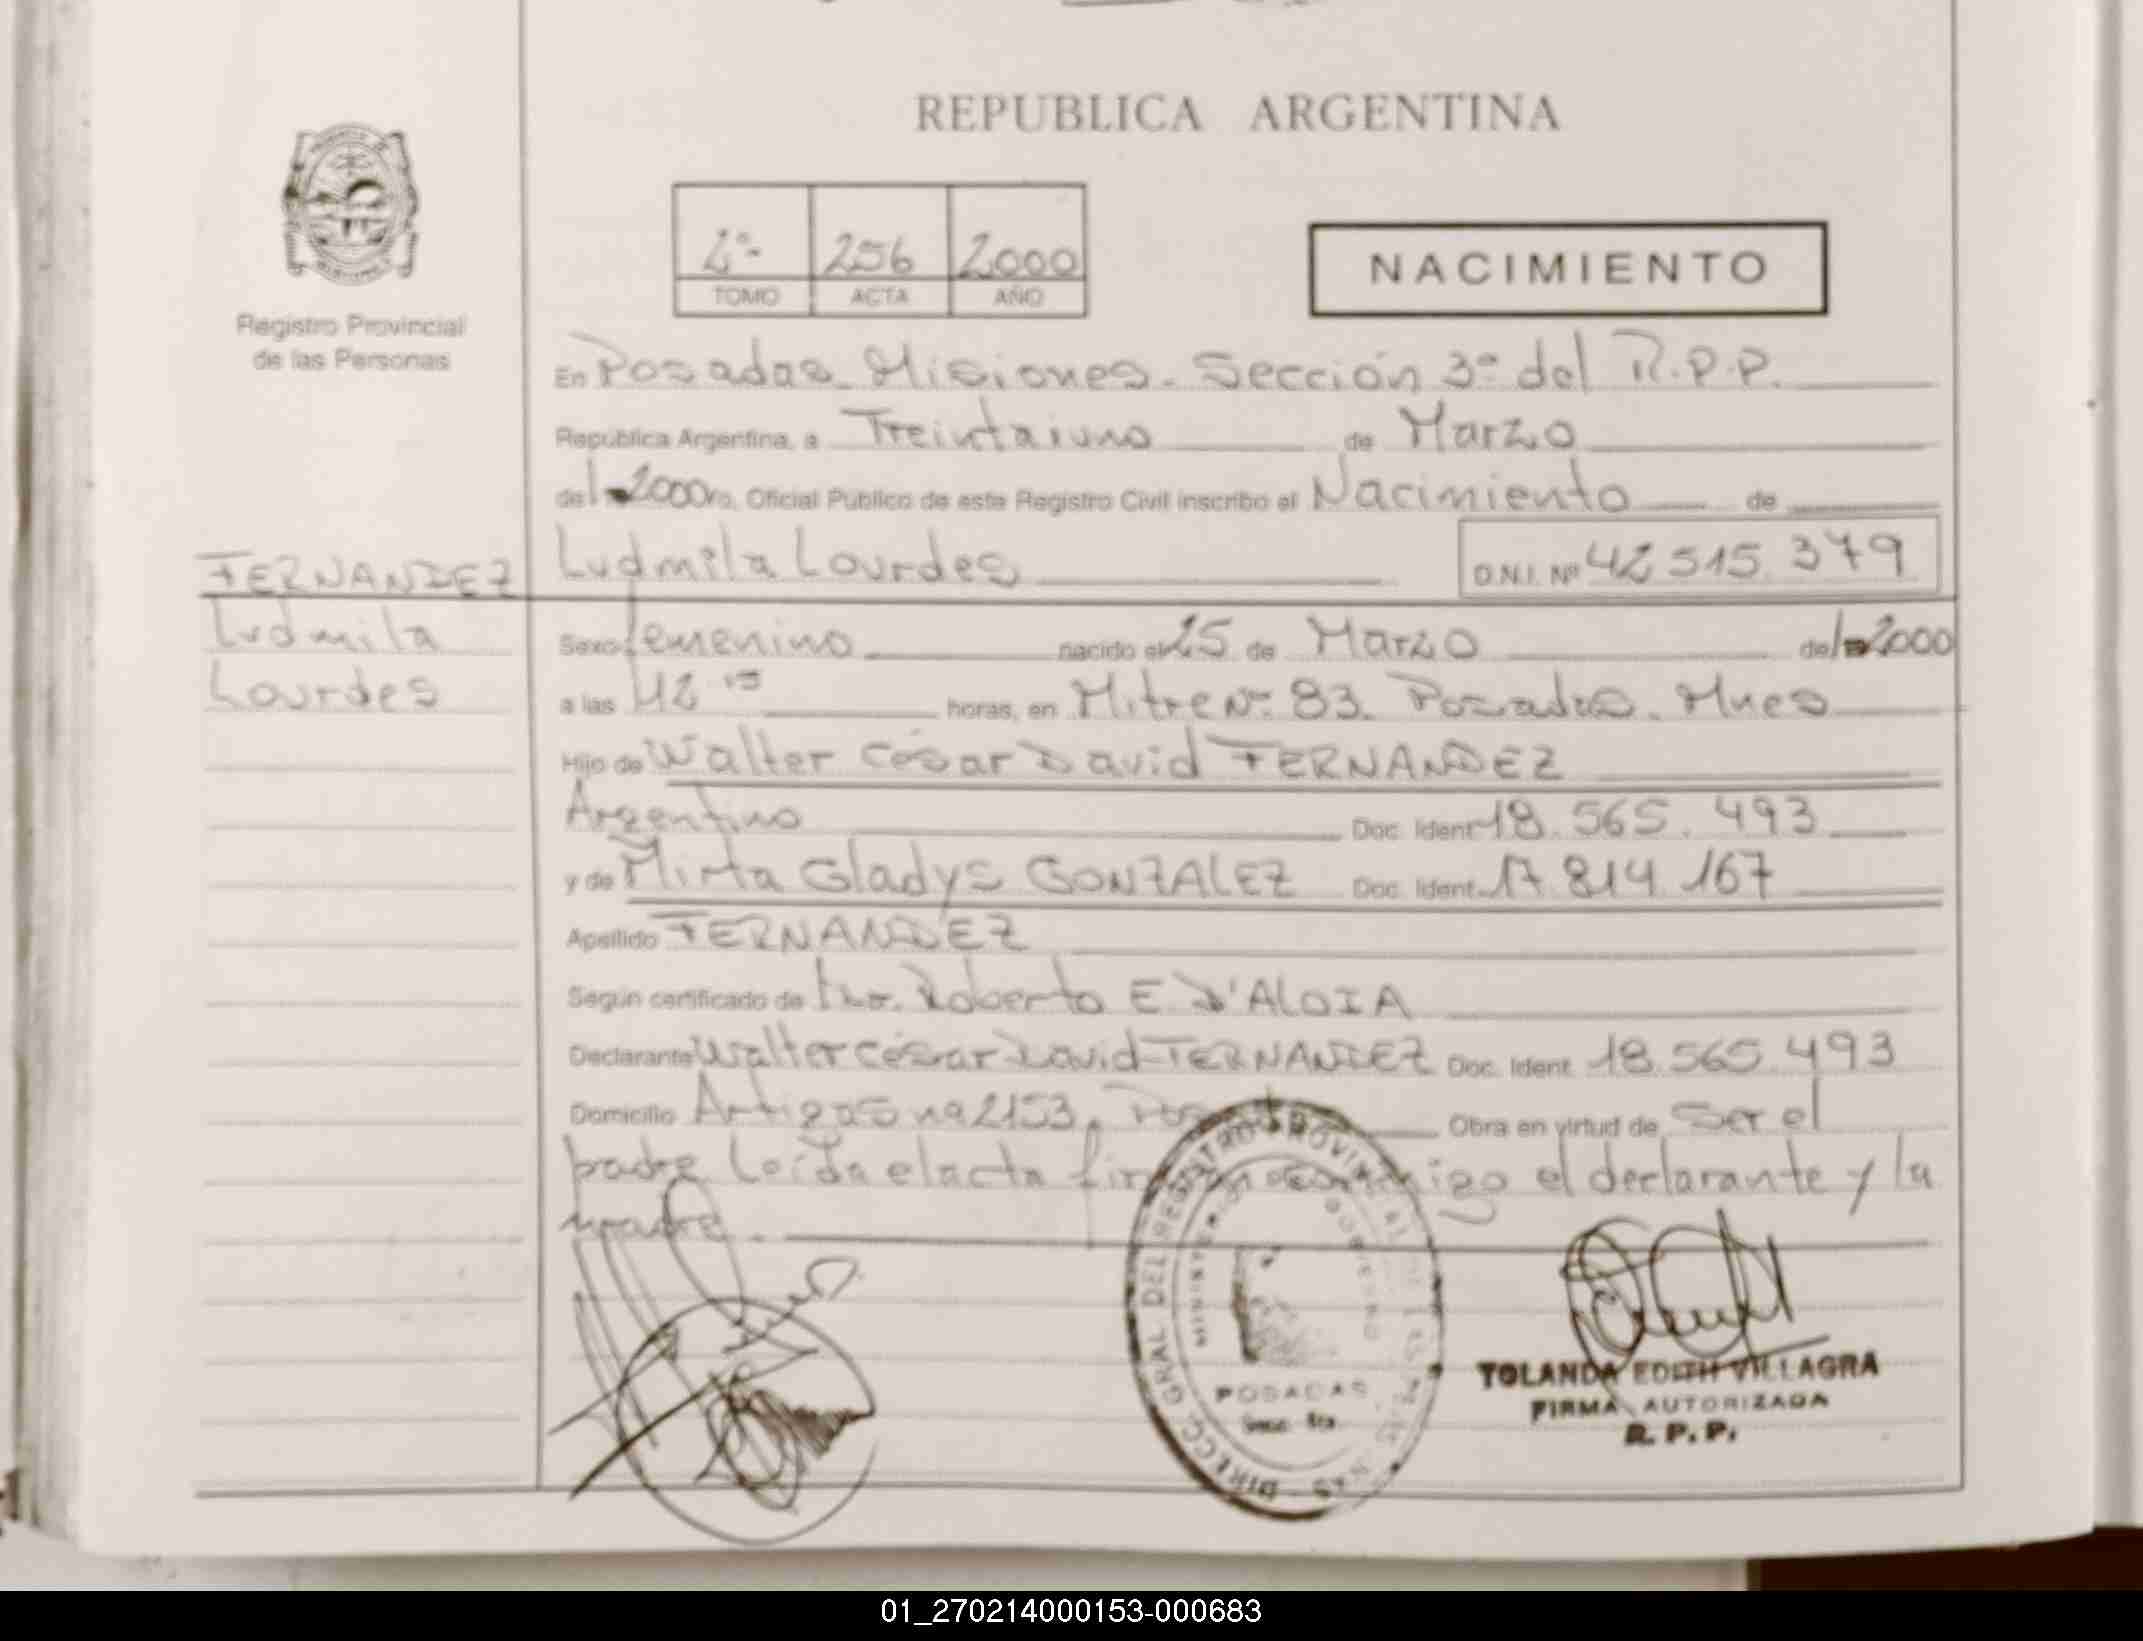 REPUBLICA ARGENTINA
2º- 256 2000
TOMO ACTA AÑO
NACIMIENTO
Registro Provincial
de las Personas
En Posadas Misiones. Sección 3º del R.P.P.
República Argentina, a Treintaiuno de Marzo
del 2000 yo, Oficial Público de este Registro Civil inscribo el Nacimiento de
FERNANDEZ
Ludmila
Lourdes
Ludmila Lourdes D.N.I. Nº 42 515 379
Sexo femenino nacido el 25 de Marzo del 2000
a las horas, en Mitre Nº 83. Posadas. Mnes
Hijo de Walter César David FERNANDEZ
Argentino Doc. Ident. 18.565.493
y de Mirta Gladys GONZALEZ Doc. Ident. 17 814 167
Apellido FERNANDEZ
Según certificado de Roberto E D'ALOIA
Declarante Walter César David FERNANDEZ Doc. Ident. 18.565.493
Domicilio Artigas nº 2153, Obra en virtud de ser el
padre Leída el acta el declarante y la
madre.
DIRECC. GRAL DEL REGISTRO PROVINCIAL DE LAS PERSONAS
MINISTERIO GOBIERNO
POSADAS
YOLANDA EDITH VILLAGRA
FIRMA AUTORIZADA
R. P. P.
01_270214000153-000683